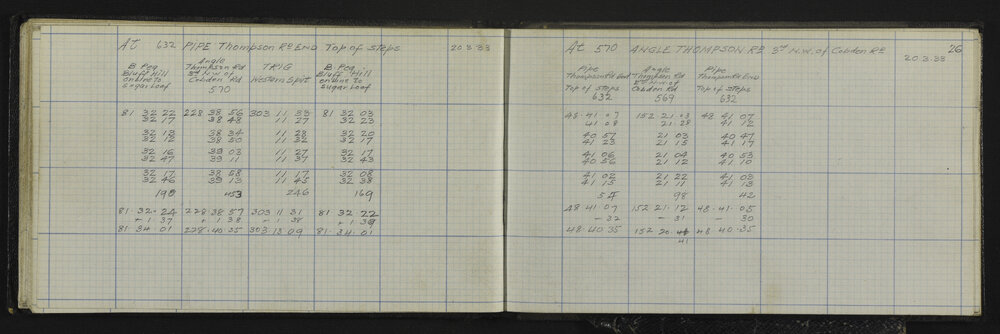 At 632 PIPE Thompson Rd END Top of Steps 20.3.33
B Peg Angle TRIG B Peg
Bluff Hill Thompson Rd Western Spit Bluff Hill
on line to 3rd N.W. of on line to
Sugar Loaf Cobden Rd Sugar Loaf
570
81 32 22 228 38 56 303 11 33 81 32 03
32 17 38 48 11 27 32 23
32 13 38 34 11 28 32 20
32 12 38 50 11 32 32 17
32 16 39 03 11 27 32 17
32 47 39 11 11 37 32 43
32 17 38 58 11 17 32 08
32 46 39 13 11 45 32 38
190 453 246 169
81 32 24 228 38 57 303 11 31 81 32 22
+ 1 37 + 1 38 + 1 38 + 1 39
81 34 01 228 40 35 303 13 09 81 34 01
At 570 ANGLE THOMPSON Rd 3rd N.W. of Cobden Rd 26
20.3.33
Pipe Angle Pipe
Thompson Rd End Thompson Rd Thompson Rd End
Top of Steps Cobden Rd Top of Steps
632 569 632
48 41 07 152 21 03 48 41 07
41 08 21 28 41 12
40 57 21 03 40 47
41 23 21 15 41 17
41 06 21 04 40 53
40 56 21 12 41 10
41 02 21 22 41 03
41 15 21 11 41 13
54 98 42
48 41 07 152 21 12 48 41 05
- 32 - 31 - 30
48 40 35 152 20 41 48 40 35
41